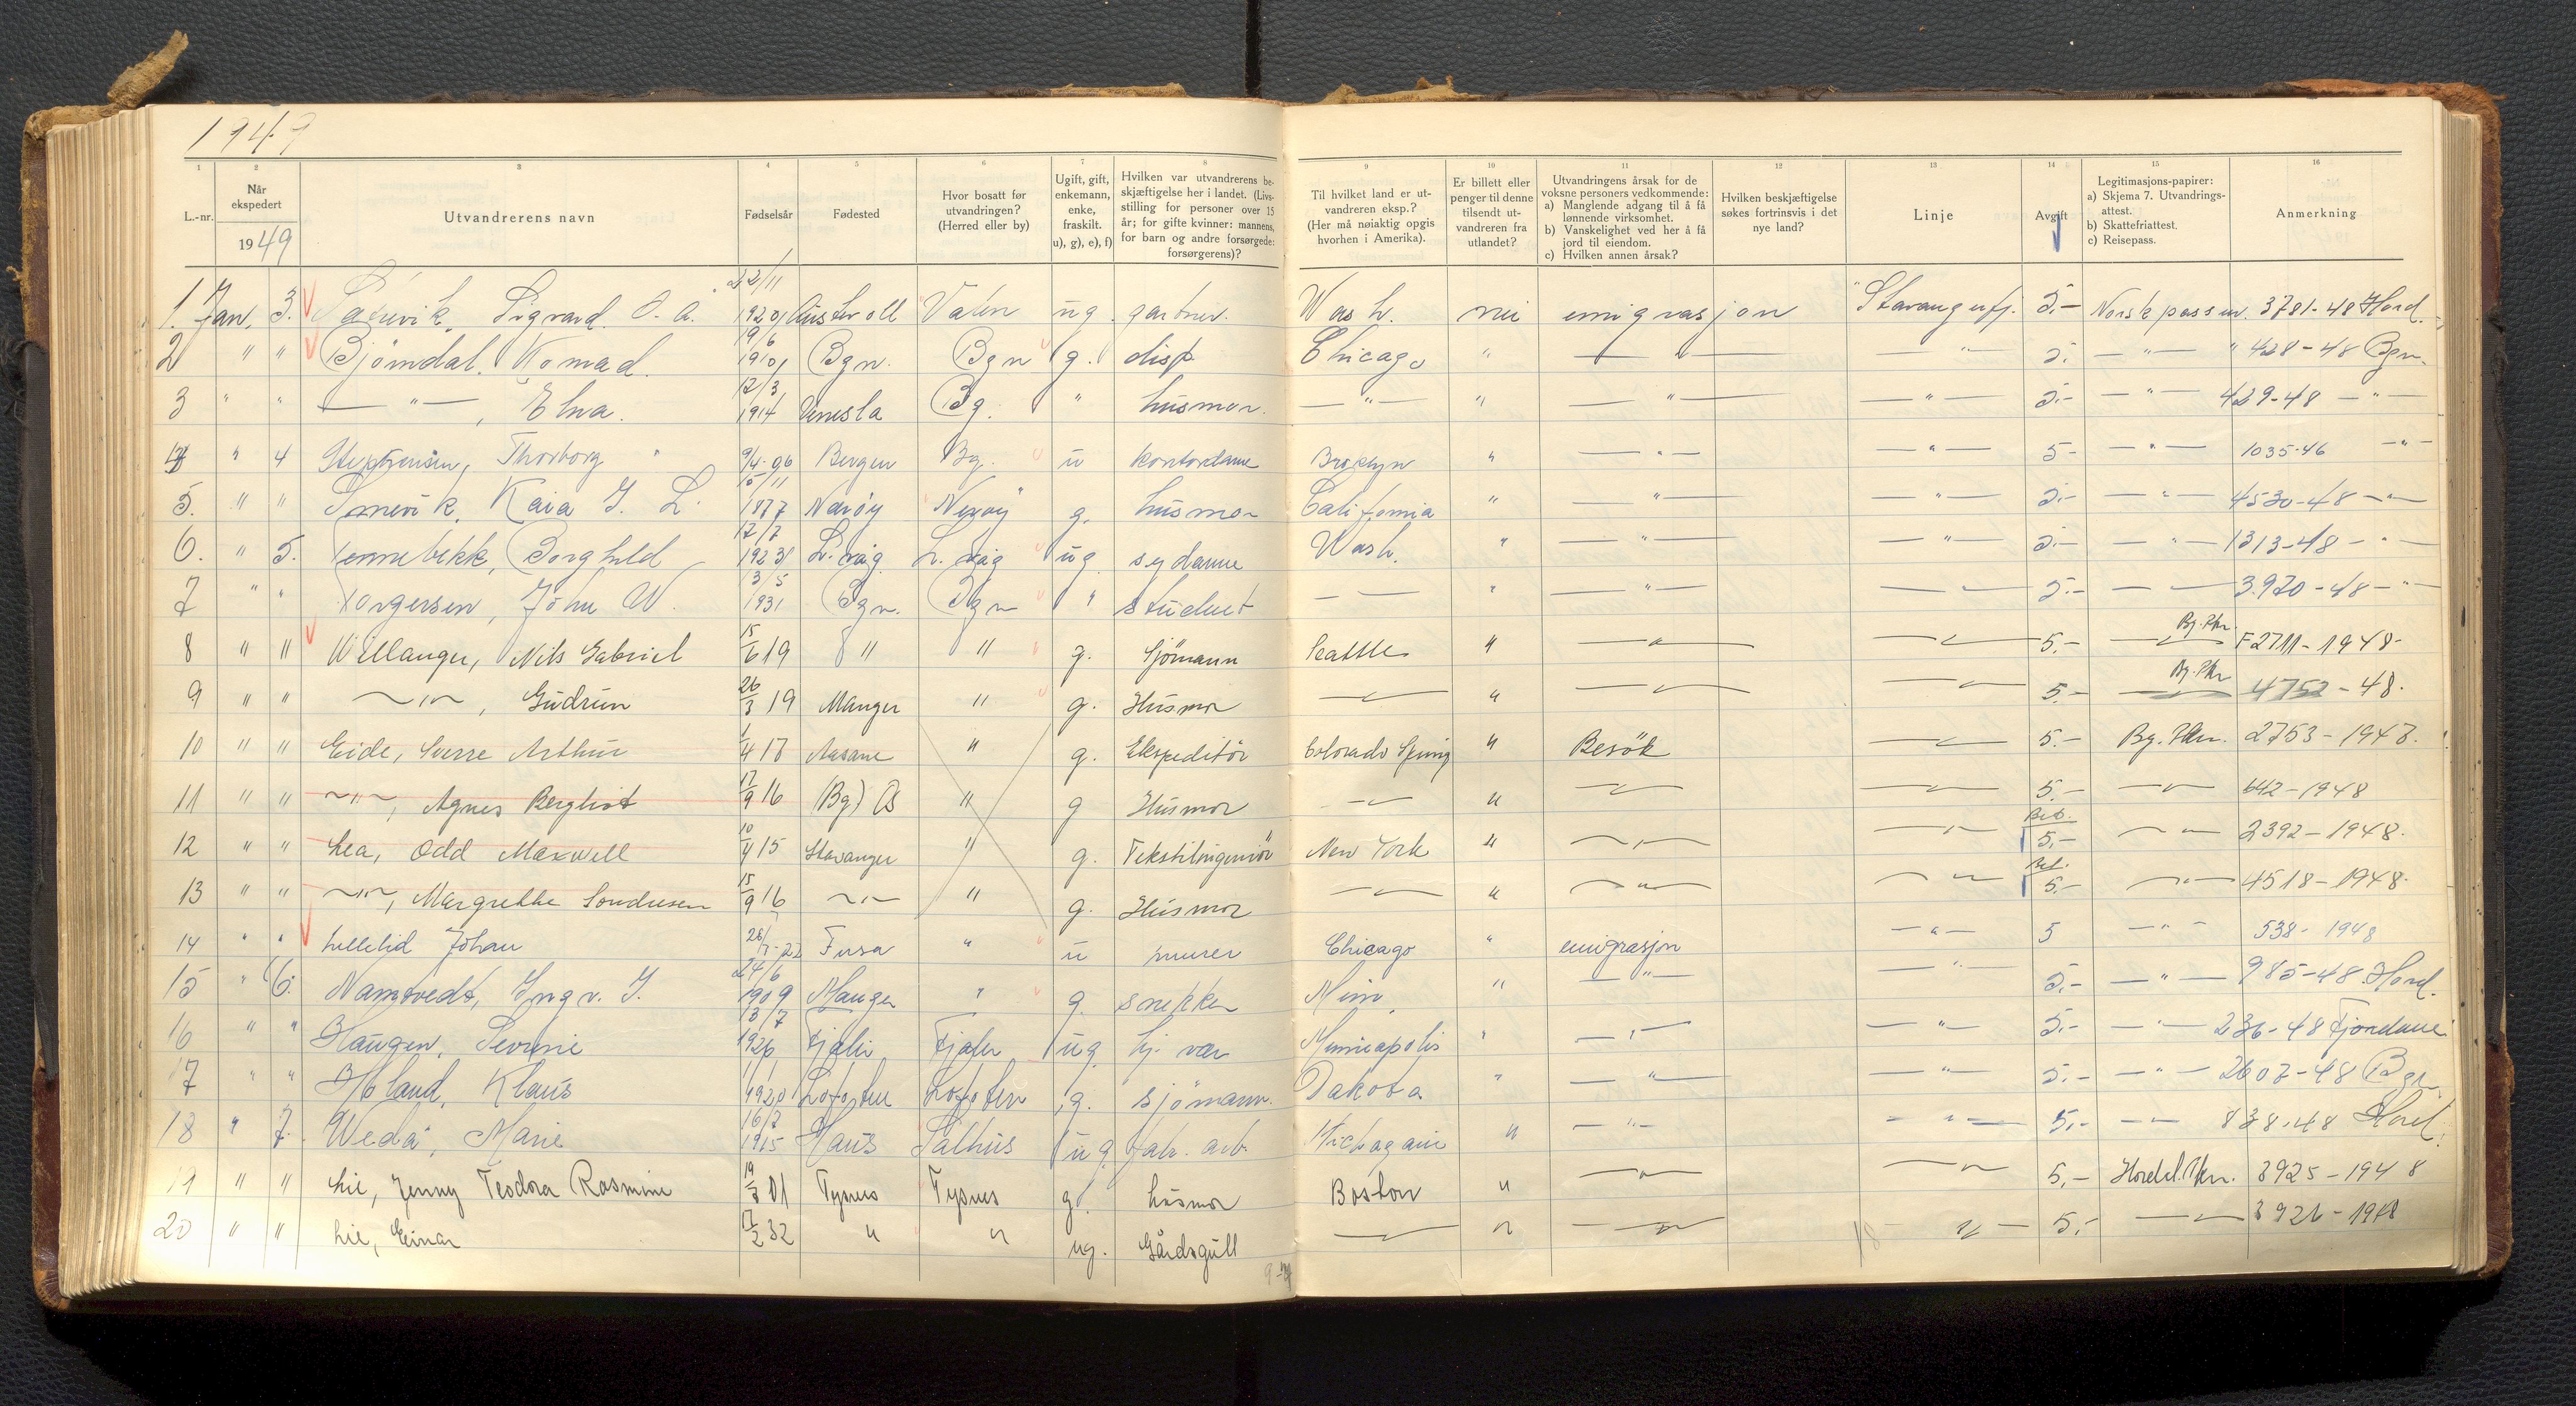 1949
1 2 3 4 5 6 7 8 9 10 11 12 13 14 15 16
L.-nr. Når ekspedert 1949 Utvandrerens navn Fødselsår Fødested Hvor bosatt før utvandringen? (Herred eller by) Ugift, gift, enkemann, enke, fraskilt. u), g), e), f) Hvilken var utvandrerens beskjæftigelse her i landet. (Livsstilling for personer over 15 år; for gifte kvinner: mannens, for barn og andre forsørgede: forsørgerens)? Til hvilket land er utvandreren eksp.? (Her må nøiaktig opgis hvorhen i Amerika). Er billett eller penger til denne tilsendt utvandreren fra utlandet? Utvandringens årsak for de voksne personers vedkommende: a) Manglende adgang til å få lønnende virksomhet. b) Vanskelighet ved her å få jord til eiendom. c) Hvilken annen årsak? Hvilken beskjæftigelse søkes fortrinsvis i det nye land? Linje Avgift Legitimasjons-papirer: a) Skjema 7. Utvandringsattest. b) Skattefriattest. c) Reisepass. Anmerkning
1. Jan. 3. Sigvard O. A. 22/11 1920 Austevoll Valen ug. gartner. Wash. nei emigrasjon Stavangerfj. 5.- Norsk pass nr. 3781-48 Hord.
2 " " Bjørndal, Konrad. 19/6 1910 Bgn. Bgn g. disp. Chicago " — " — — " — 5.- — " — " 428-48 Bgn.
3 " " — " —, Elna. 12/3 1914 Venesla Bg. " husmor. — " — " — " — — " — 5.- — " — 429-48 — " —
4 " 4 Stephensen, Thorborg 9/4-06 Bergen Bg. u kontordame Brooklyn " — " — — " — 5- — " — 1035-46 — " —
5. " " Kaia J. L. 15/11 1877 Nærøy Nerøy g. husmor California " — " — — " — 5.- — " — 4530-48 — " —
6. " 5. Tennebekk, Borghild 12/7 1923 L. våg L. våg ug sydame Wash. " — " — — " — 5.- — " — 1313-48 — " —
7 " " Torgersen, John W. 3/5 1931 Bgn. Bgn " student — — " — " — — — 5.- — — 3.970-48 — " —
8 " " Willanger, Nils Gabriel 15/6 19 " " g. Sjömann Seattle " — " — — " — 5.- Bg. Pkr. — " — F2711-1948-
9 " " — " —, Gudrun 26/3 19 Manger " g. Husmor — " — " — " — — " — 5.- Bg. Pkr — " — 4752-48.
10 " " Eide, Sverre Arthur 1/4 18 Aasane " g. Ekspeditör Colorado Spring " Besök — " — 5.- Bg. Pkr. 2753-1948.
11 " " — " —, Agnes Bergliot 17/9 16 (Bg) Os " g Husmor — " — " — " — — " — 5.- — " — 642-1948
12 " " Lea, Odd Maxwell 10/4 15 Stavanger " g. Tekstilingeniör New York " — " — — " — Bet. 5.- — " — 2392-1948.
13 " " — " —, Margrethe Sondresen 15/9 16 — " — " g. Husmor — " — " — " — — " — Bet. 5.- — " — 4518-1948-
14 " " Lillelid Johan Fusa " u murer Chicago " emigrasjon — " — 5 — " — 538-1948
15 " 6. Namtvedt, Ingv. J. 24/6 1909 Manger " g. snekker Minn. " — " — — " — 5.- — " — 985-48 Hord.
16 " " Haugen, Severine 13/7 1926 Fjaler Fjaler ug hj. vær Minneapolis " — " — — " — 5.- — " — 236-48 Fjordane
17 " " Holand, Klaus 1/1 1920 Lofoten Lofoten g. sjömann. Dakota " — " — — " — 5.- — " — 2607-48 Bgn
18 " 7. Weda, Marie 16/7 1915 Haus Salhus ug fabr. arb. Michagain " — " — — " — 5.- — " — 838-48 Hord.
19 " " Lie, Jenny Teodora Rasmine 01 Tysnes Tysnes g. husmor Boston " — " — — " — 5.- Hordal. Pkr. 3925-1948
20 " " Lie, Einar 17/2 32 " " ug. Gårdsgutt — " — " — " — — " — 5.- — " — 3926-1948